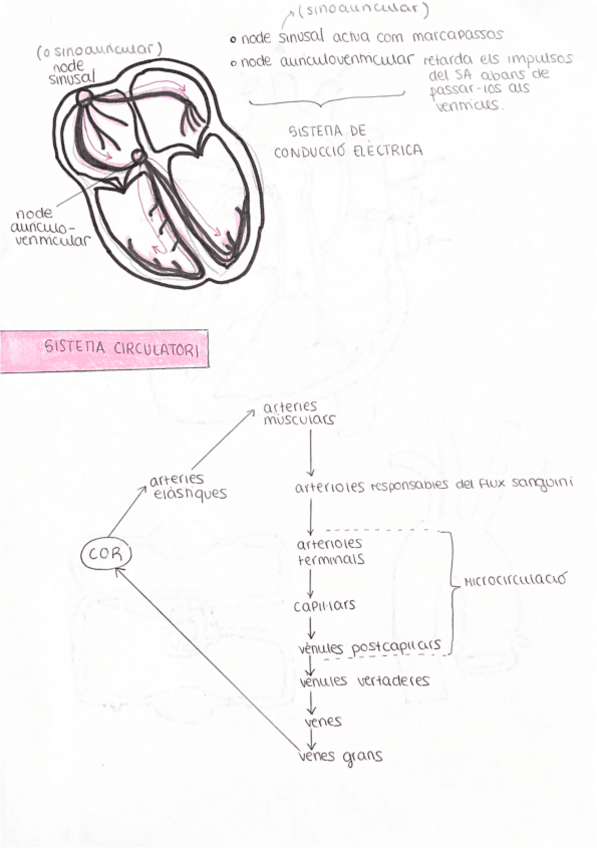 (sinoauricular)
o node sinusal actua com marcapassos
o node auriculoventricular retarda els impulsos
del SA abans de
passar-los als
ventricles.
SISTEMA DE
CONDUCCIÓ ELÈCTRICA
(o sinoauricular)
node
sinusal
node
auriculo-
ventricular
SISTEMA CIRCULATORI
arteries
musculars
arteries
elàstiques
arterioles responsables del flux sanguini
COR
arterioles
terminals
MICROCIRCULACIÓ
capil·lars
vènules postcapil·lars
vènules vertaderes
venes
venes grans